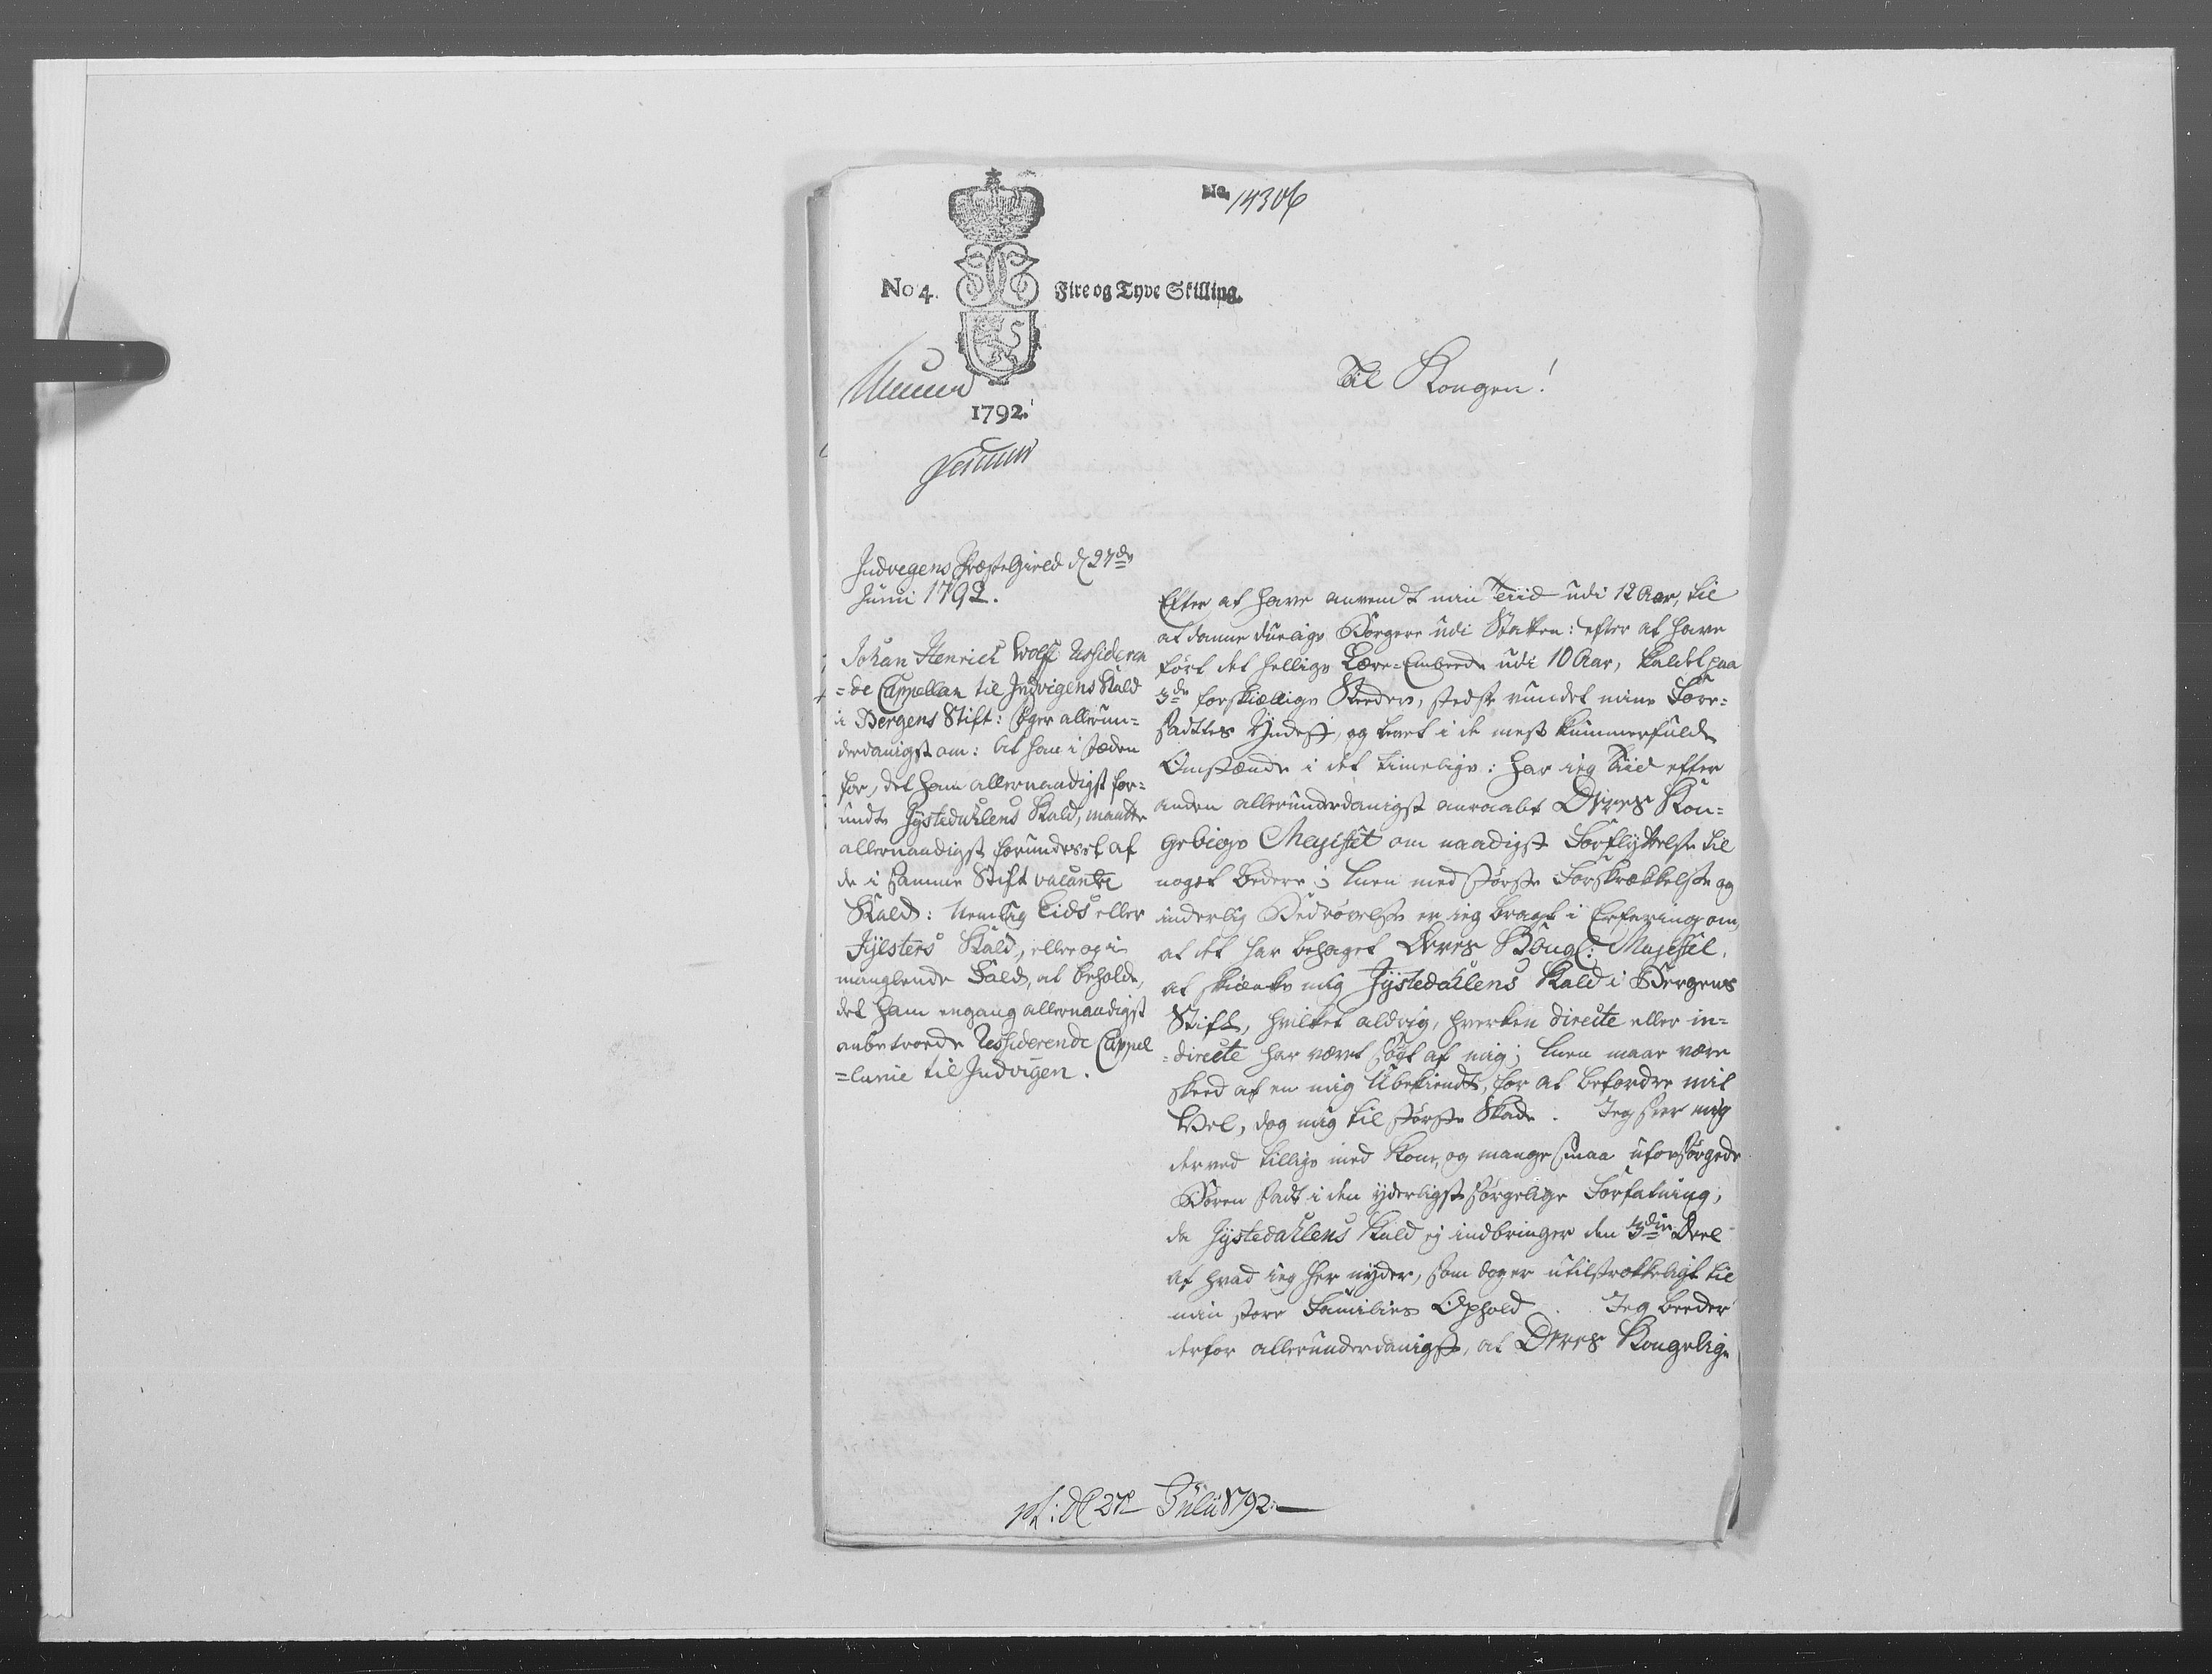 No. 14306
No 4.
Fire og Tyve Skilling.
1792.
Til Kongen!
Indvigens Præstegield d 27de
Junii 1792.
Johan Henrich Wolff Ressideren
=de Cappellan til Indvigens Kald
i Bergens Stift: søger allerun=
derdanigst om: At han i stæden
for, det ham allernaadigst for=
undte Jystedahlens Kald, maatte
allernaadigst forundes et af
de i samme Stift vacante
Kald: Nemlig Eids eller
Jÿlsters Kald, eller og i
manglende Fald, at beholde,
det ham engang allernaadigst
anbetroede Ressiderende Cappel
=lanie til Indvigen.
Efter at have anvendt min Tiid udi 12 Aar, til
at danne duelige Borgere udi Staten: efter at have
ført det hellige Lære-Embede udi 10 Aar, kaldet paa
3de forskiællige Steder, stedse vundet mine Fore=
sadttes Yndest, og levet i de mest kummerfulde
Omstænde i det timelige: har ieg Tiid efter
anden allerunderdanigst anraabt Deres Kon=
gelige Majestet om naadigst Forflyttelse til
noget bedere; Men med største Forskrækkelse og
inderlig Bedrøvelse er ieg bragt i Erfaring om,
at det har behaget Deres Kongl: Majestet.
at skiænke mig Jystedahlens Kald i Bergens
Stift, hvilket aldrig, hverken directe eller in=
=directe har været søgt af mig; Men maae være
skeed af en mig Ubekiendt, for at befordre mit
Vel, dog mig til største Skade. Jeg seer mig
derved tillige med Kone, og mange smaa uforsørgede
Børen sadt i den yderligst sørgelige Forfatning,
da Jystedahlens Kald ej indbringer den 3die Deel
af hvad ieg her nyder, som dog er utilstrækkeligt til
min store Families Ophold. Jeg beeder
derfor allerunderdanigst, at Deres Kongelige
d 27e Julii 1792.